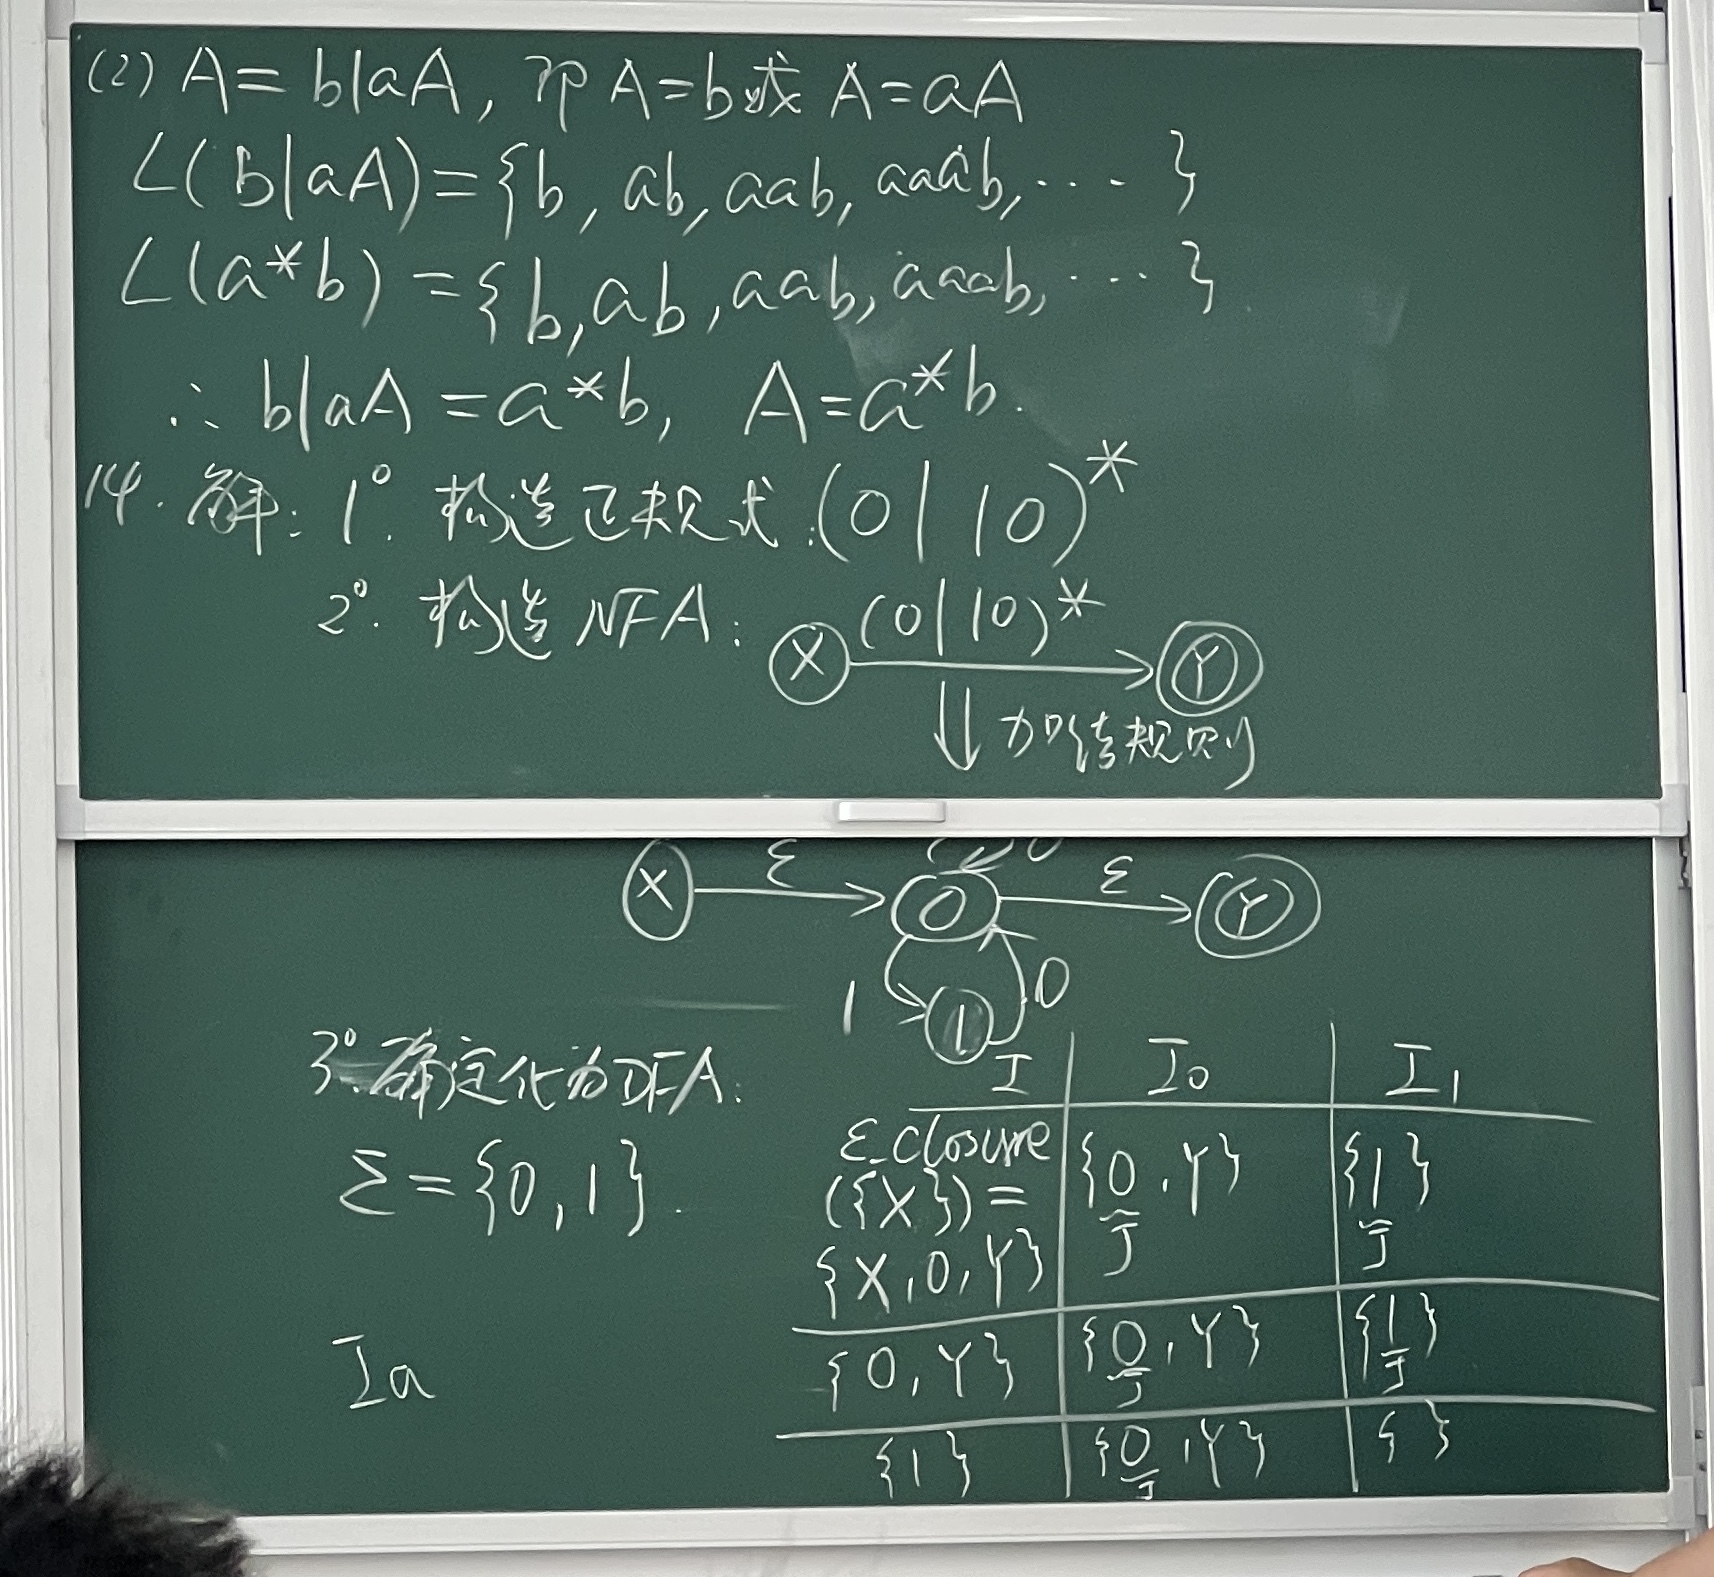 (2) A=b|aA, 即A=b或 A=aA
L(b|aA)={b, ab, aab, aaab, ... }
L(a*b) ={b, ab, aab, aaab, ... }
∴ b|aA=a*b, A=a*b.
14. 解: 1°. 构造正规式:(0|10)*
2°. 构造NFA:
(0|10)*
X Y
⇓ 加结规则
X ε 0 ε Y
1 1 0
3°. 确定化为DFA:
Σ={0,1}.
Ia
I I0 I1
ε_closure
({X})=
{X,0,Y} {0,Y} {1}
J J
{0,Y} {0,Y} {1}
J J
{1} {0,Y} { }
J